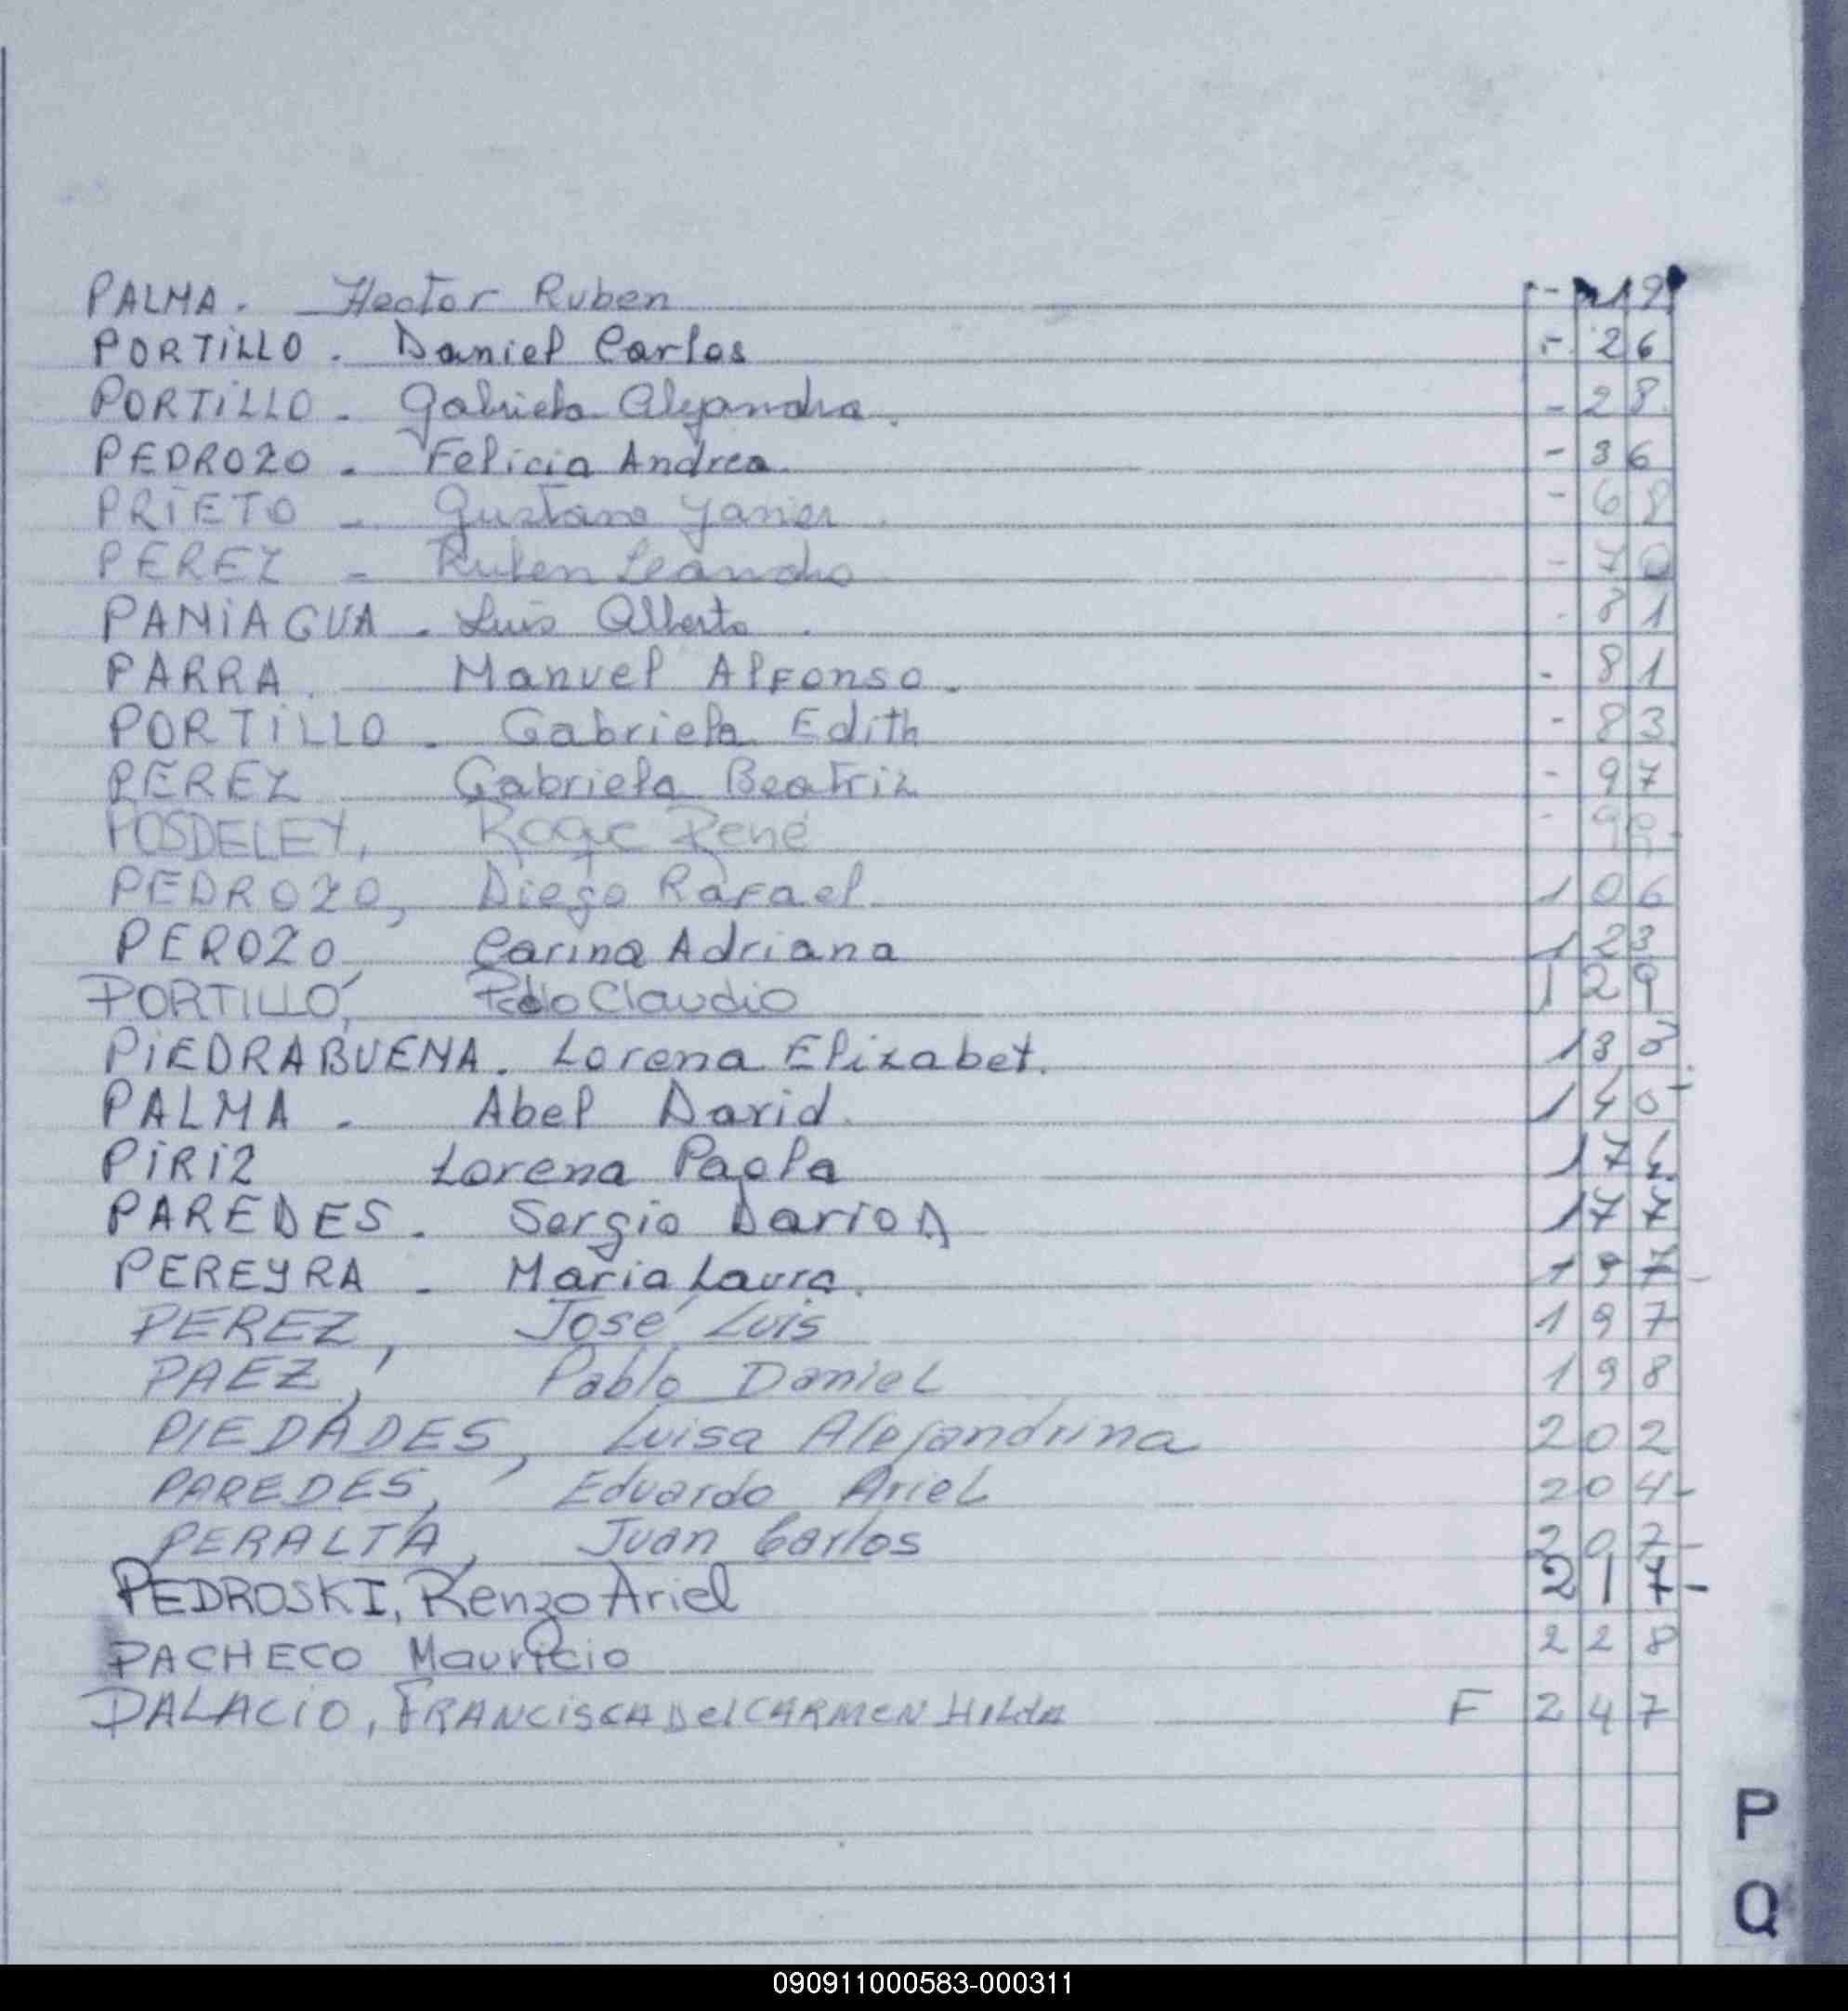 PALMA. Hector Ruben - 19
PORTILLO. Daniel Carlos - 26
PORTILLO - Gabriela Alejandra. - 28
PEDROZO. Felicia Andrea - 36
PRIETO - Gustavo Javier - 68
PEREZ - Ruben Leandro - 70
PANIAGUA. Luis Alberto. - 81
PARRA. Manuel Alfonso. - 81
PORTILLO. Gabriela Edith - 83
PEREZ Gabriela Beatriz - 97
POSDELEY, Roque René - 99
PEDROZO, Diego Rafael 106
PEROZO Carina Adriana 123
PORTILLO, Pedo Claudio 129
PIEDRABUENA. Lorena Elizabet. 133
PALMA. Abel David. 140
PIRIZ Lorena Paola 174
PAREDES. Sergio Dario 177
PEREYRA - Maria Laura. 197
PEREZ, José Luis 197
PAEZ, Pablo Daniel 198
PIEDADES, Luisa Alejandrina 202
PAREDES, Eduardo Ariel 204-
PERALTA, Juan Carlos 207-
PEDROSKI, Renzo Ariel 217-
PACHECO Mauricio 228
PALACIO, FRANCISCA Del CARMEN Hilda F 247
P
Q
090911000583-000311